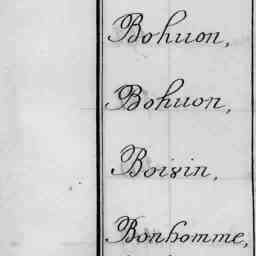 Bohuon,
Bohuon,
Boisin,
Bonhomme,